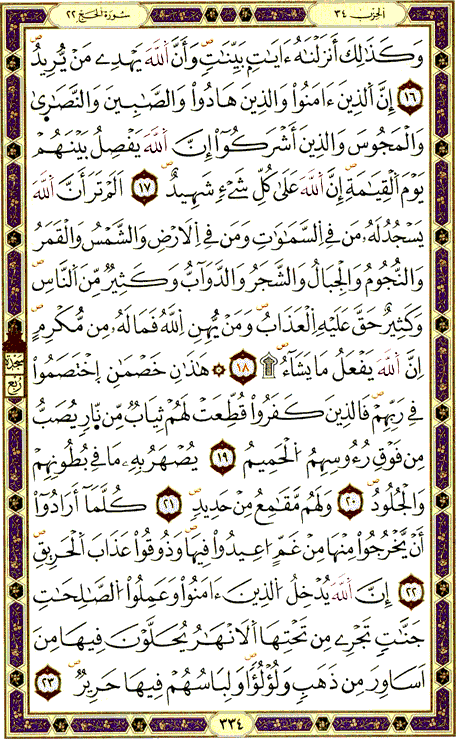 الحزب ٣٤
سورة الحج ٢٢
وَكَذَٰلِكَ أَنزَلْنَٰهُ ءَايَٰتٍ بَيِّنَٰتٍ وَأَنَّ اَللَّهَ يَهْدِے مَنْ يُّرِيدُ
١٦ إِنَّ اَلذِينَ ءَامَنُواْ وَالذِينَ هَادُواْ وَالصَّٰبِينَ وَالنَّصَٰرَىٰ
وَالْمَجُوسَ وَالذِينَ أَشْرَكُوٓاْ إِنَّ اَللَّهَ يَفْصِلُ بَيْنَهُمْ
يَوْمَ اَلْقِيَٰمَةِ إِنَّ اَللَّهَ عَلَىٰ كُلِّ شَےْءٍ شَهِيدٌ ١٧ اَلَمْ تَرَ أَنَّ اَللَّهَ
يَسْجُدُ لَهُۥ مَن فِے اِلسَّمَٰوَٰتِ وَمَن فِے اِلَارْضِ وَالشَّمْسُ وَالْقَمَرُ
وَالنُّجُومُ وَالْجِبَالُ وَالشَّجَرُ وَالدَّوَآبُّ وَكَثِيرٌ مِّنَ اَلنَّاسِ
وَكَثِيرٌ حَقَّ عَلَيْهِ اِلْعَذَابُ وَمَنْ يُّهِنِ اِللَّهُ فَمَا لَهُۥ مِن مُّكْرِمٍ
اِنَّ اَللَّهَ يَفْعَلُ مَا يَشَآءُ ۩ ١٨ ۞ هَٰذَٰنِ خَصْمَٰنِ اِخْتَصَمُواْ
فِے رَبِّهِمْ فَالذِينَ كَفَرُواْ قُطِّعَتْ لَهُمْ ثِيَابٌ مِّن نَّارٍ يُصَبُّ
مِن فَوْقِ رُءُوسِهِمُ اُلْحَمِيمُ ١٩ يُصْهَرُ بِهِۦ مَا فِے بُطُونِهِمْ
وَالْجُلُودُ ٢٠ وَلَهُم مَّقَٰمِعُ مِنْ حَدِيدٍ ٢١ كُلَّمَآ أَرَادُوٓاْ
أَنْ يَّخْرُجُواْ مِنْهَا مِنْ غَمٍّ اُعِيدُواْ فِيهَا وَذُوقُواْ عَذَابَ اَلْحَرِيقِ
٢٢ إِنَّ اَللَّهَ يُدْخِلُ اُلذِينَ ءَامَنُواْ وَعَمِلُواْ اُلصَّٰلِحَٰتِ
جَنَّٰتٍ تَجْرِے مِن تَحْتِهَا اَلَانْهَٰرُ يُحَلَّوْنَ فِيهَا مِنَ
اَسَاوِرَ مِن ذَهَبٍ وَلُؤْلُؤاً وَلِبَاسُهُمْ فِيهَا حَرِيرٌ ٢٣
سجدة
ربع
٣٣٤